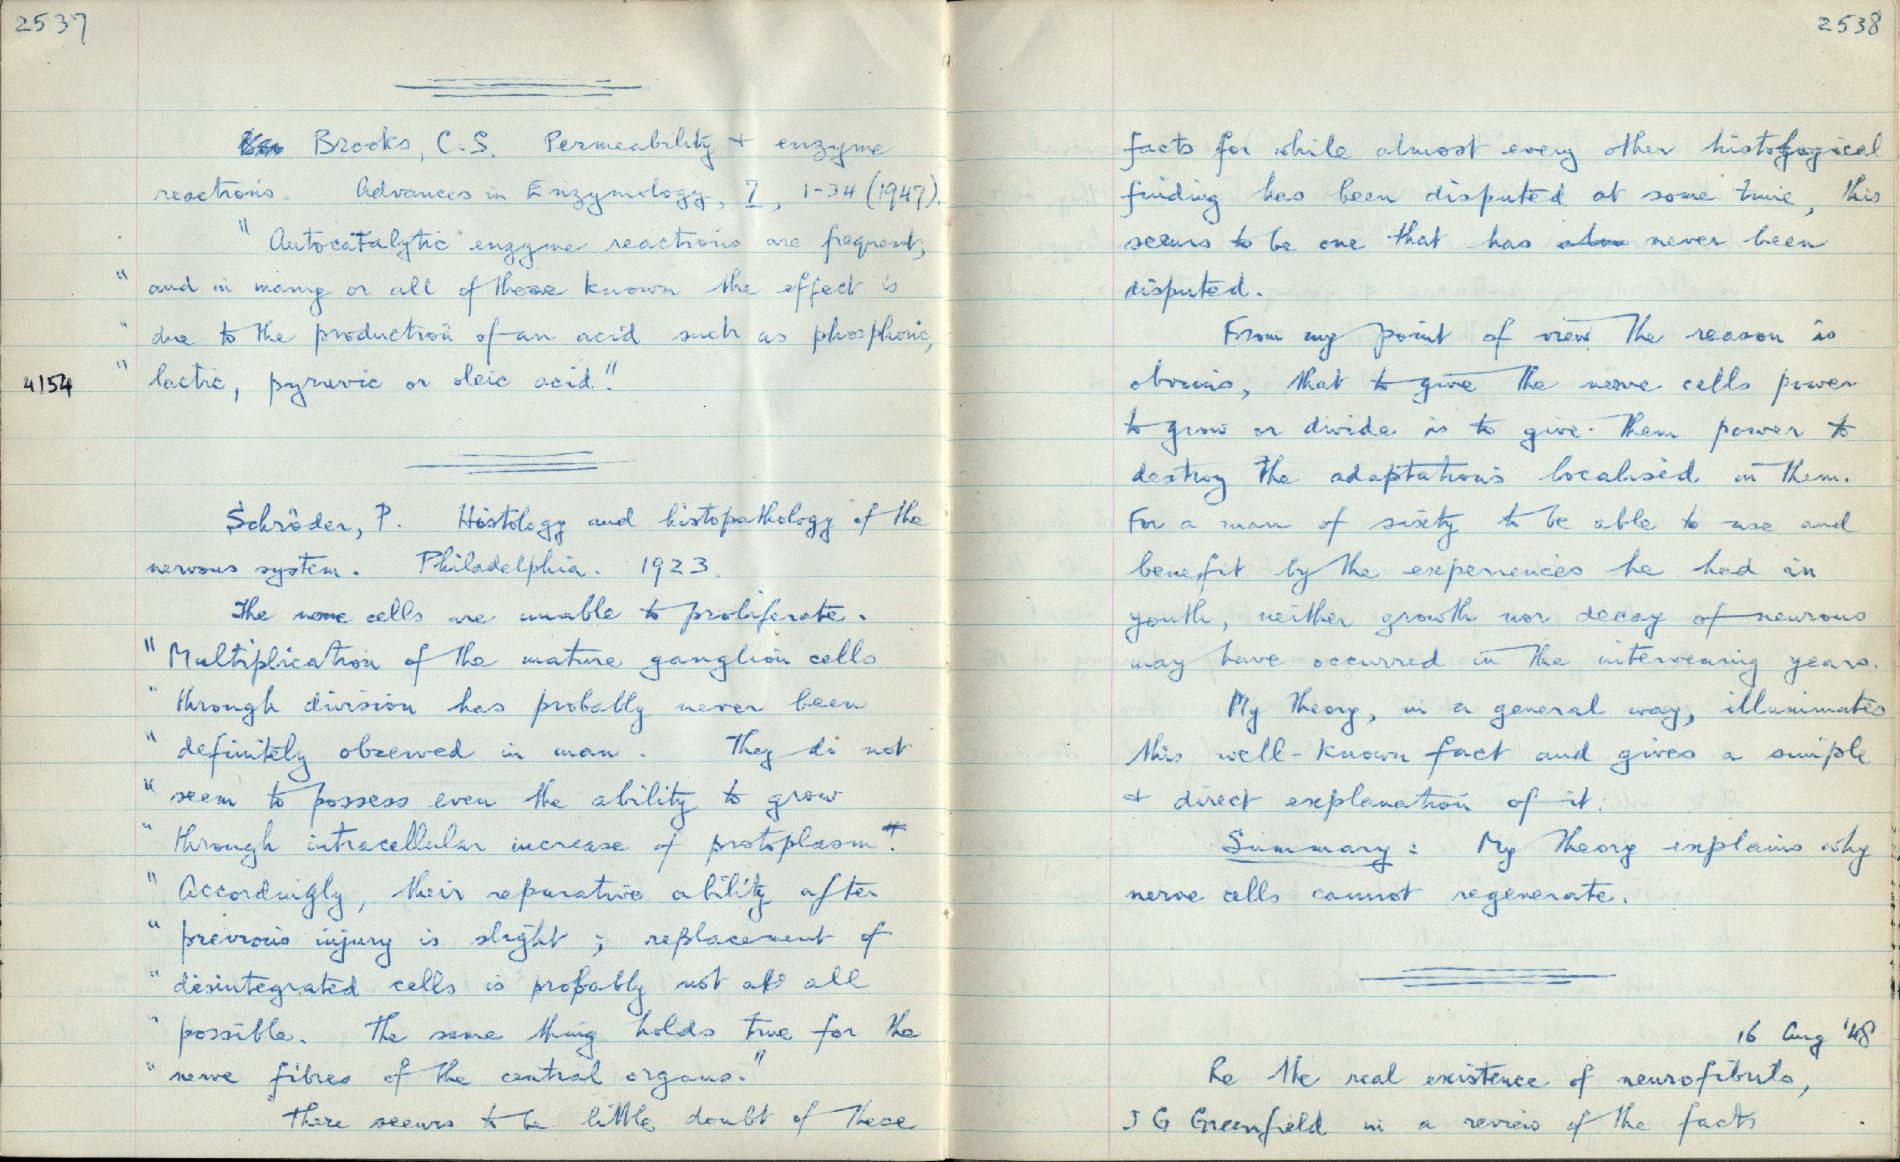 2537
Brooks, C.S. Permeability + enzyme
reactions. Advances in Enzymology, 7, 1-34 (1947).
" Autocatalytic enzyme reactions are frequent;
" and in many or all of those known the effect is
" due to the production of an acid such as phosphoric,
4154 " lactic, pyruvic or oleic acid."
Schröder, P. Histology and histopathology of the
nervous system. Philadelphia. 1923.
The nerve cells are unable to proliferate.
" Multiplication of the mature ganglion cells
" through division has probably never been
" definitely observed in man. They do not
" seem to possess even the ability to grow
" through intracellular increase of protoplasm.
" Accordingly, their reparative ability after
" previous injury is slight ; replacement of
" disintegrated cells is probably not at all
" possible. The same thing holds true for the
" nerve fibres of the central organs."
There seems to be little doubt of these
2538
facts for while almost every other histological
finding has been disputed at some time, this
seems to be one that has never been
disputed.
From my point of view the reason is
obvious, that to give the nerve cells power
to grow or divide is to give them power to
destroy the adaptations localised in them.
For a man of sixty to be able to use and
benefit by the experiences he had in
youth, neither growth nor decay of neurons
may have occurred in the intervening years.
My theory, in a general way, illuminates
this well-known fact and gives a simple
+ direct explanation of it.
Summary : My theory explains why
nerve cells cannot regenerate.
16 Aug '48
Re the real existence of neurofibrils,
J G Greenfield in a review of the facts